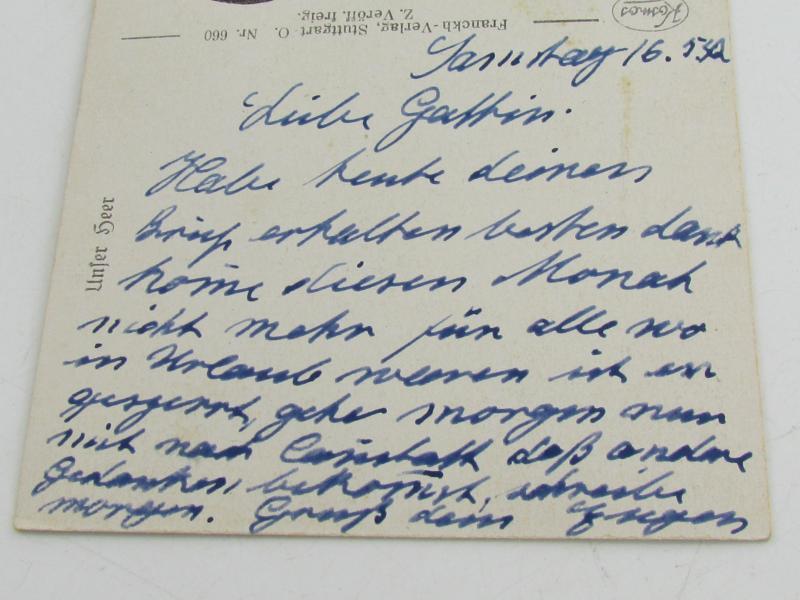 Kosmos
Franckh-Verlag, Stuttgart O. Nr. 660
Z. Veröff. freig.
Unser Heer
Samstag 16. 5.42
Liebe Gattin.
Habe heute deinen
Brief erhalten besten dank
kome diesen Monat
nicht mehr für alle wo
in Urlaub waren ist er
gesperrt, gehe morgen nun
mit nach Canstatt daß andere
Gedanken bekomst, schreibe
morgen. Gruß dein Eugen